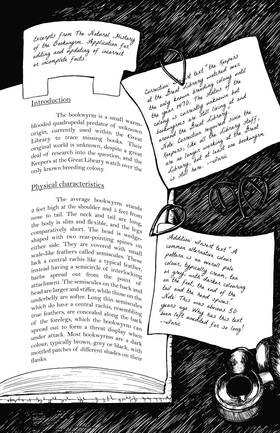 Excerpts from The Natural History
of the Bookwyrm. Application for
adding and updating of incorrect
or incomplete facts.
Introduction
The bookwyrm is a small warm-
blooded quadrupedal predator of unknown
origin, currently used within the Great
Library to trace missing books. Their
original world is unknown, despite a great
deal of research into the question, and the
Keepers at the Great Library watch over the
only known breeding colony.
Physical characteristics
The average bookwyrm stands
2 feet high at the shoulder and 5 feet from
nose to tail. The neck and tail are long,
the body is slim and flexible, and the legs
comparatively short. The head is wedge-
shaped with two rear-pointing spines on
either side. They are covered with small
scale-like feathers called semiscutes. These
lack a central rachis like a typical feather,
instead having a semicircle of interlocking
barbs spread out from the point of
attachment. The semiscutes on the feet and
head are larger and stiffer, while those on the
underbelly are softer. Long thin semiscutes,
which do have a central rachis, resembling
true feathers, are concealed along the back
of the forelegs, which the bookwyrm can
spread out to form a threat display when
under attack. Most bookwyrms are a dark
colour, typically brown, grey or black, with
mottled patches of different shades on their
flanks.
Correction: Insert text "the Keepers
at the Great Library watched over
the only known breeding colony until
the year 1970. The status of the
colony is currently unknown, but
bookwyrms are still living at and
around the Great Library."
Note: Correction required since the
Keepers, like all the Library staff,
are no longer working at the Great
Library, but at least one bookwyrm
is still here.
Addition: Insert text "A
common alternative colour
pattern is an overall pale
colour, typically cream, tan
or grey, with darker colouring
on the feet, the end of the
tail and the head spines."
Note: This was obvious 50
years ago. Why has this text
been left unedited for so long?